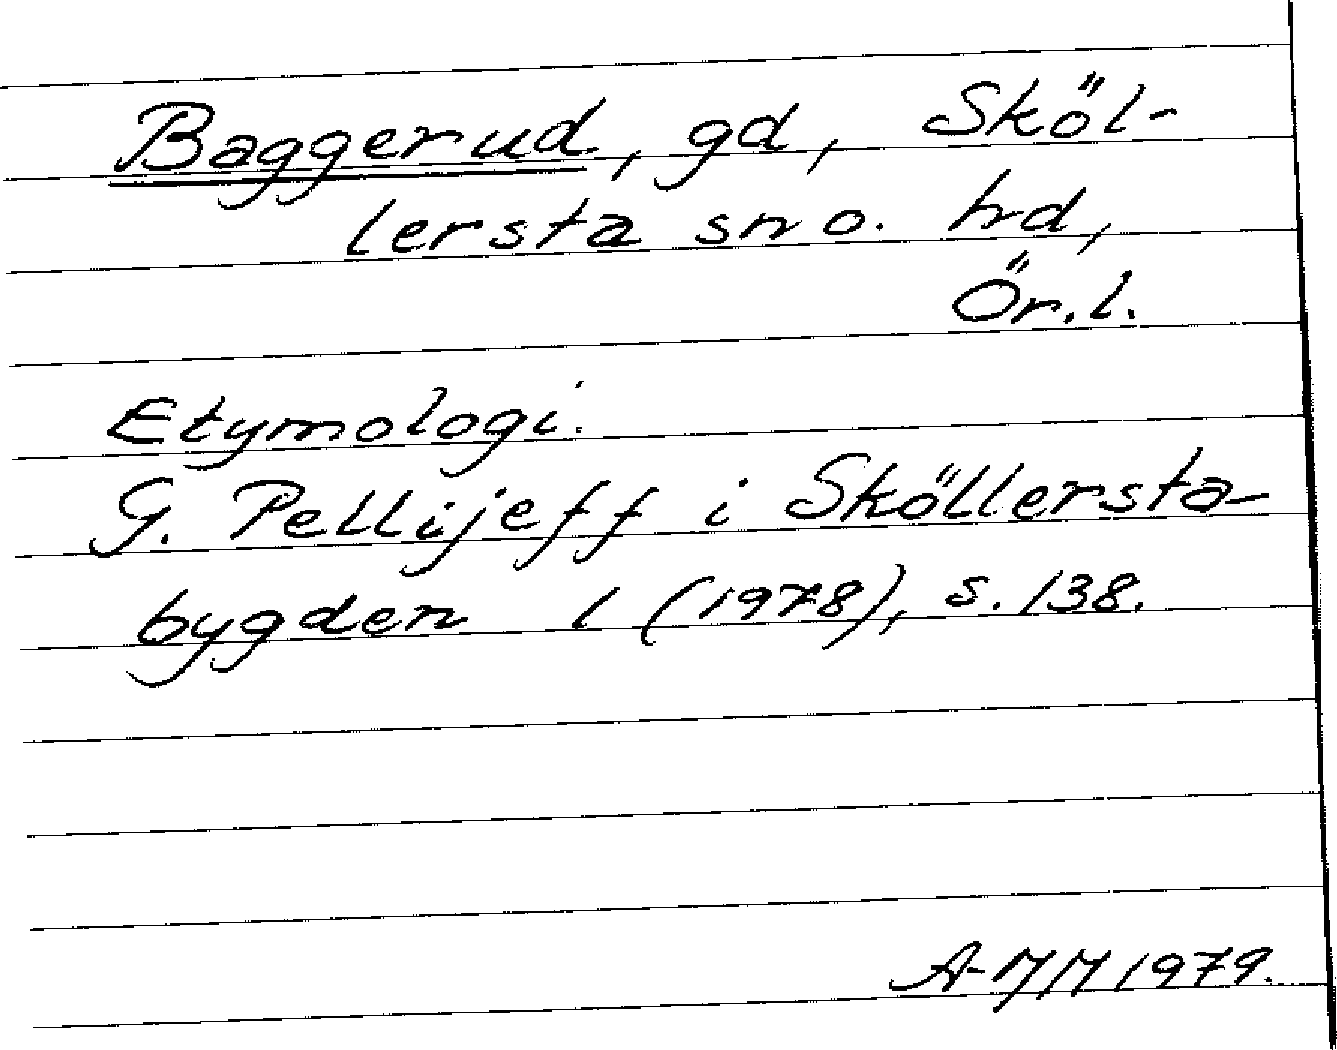 Baggerud, gd, Sköl-
lersta sn o. hd,
Ör.l.
Etymologi.
G. Pellijeff i Sköllersta-
bygden 1 (1978), s. 138.
A-MM 1979.